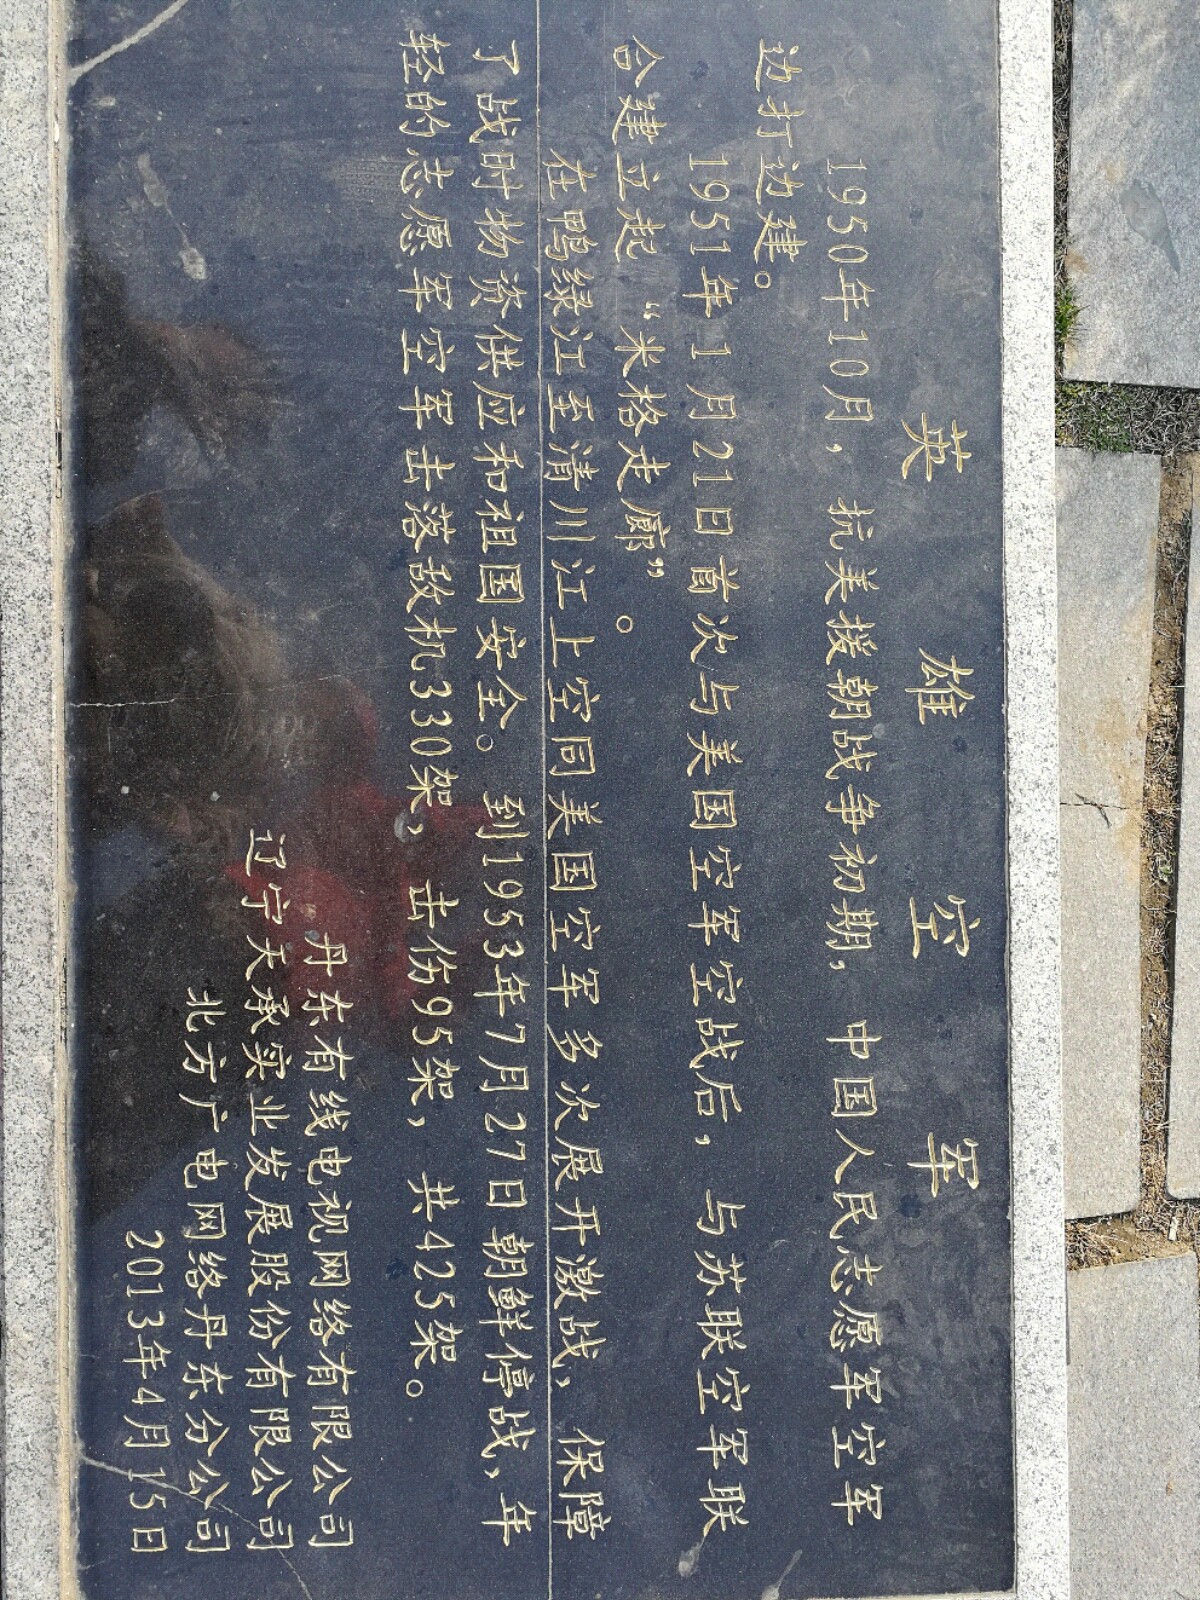 英雄空军
1950年10月，抗美援朝战争初期，中国人民志愿军空军
边打边建。
1951年1月21日首次与美国空军空战后，与苏联空军联
合建立起“米格走廊”。
在鸭绿江至清川江上空同美国空军多次展开激战，保障
了战时物资供应和祖国安全。到1953年7月27日朝鲜停战，年
轻的志愿军空军击落敌机330架，击伤95架，共425架。
丹东有线电视网络有限公司
辽宁天承实业发展股份有限公司
北方广电网络丹东分公司
2013年4月15日